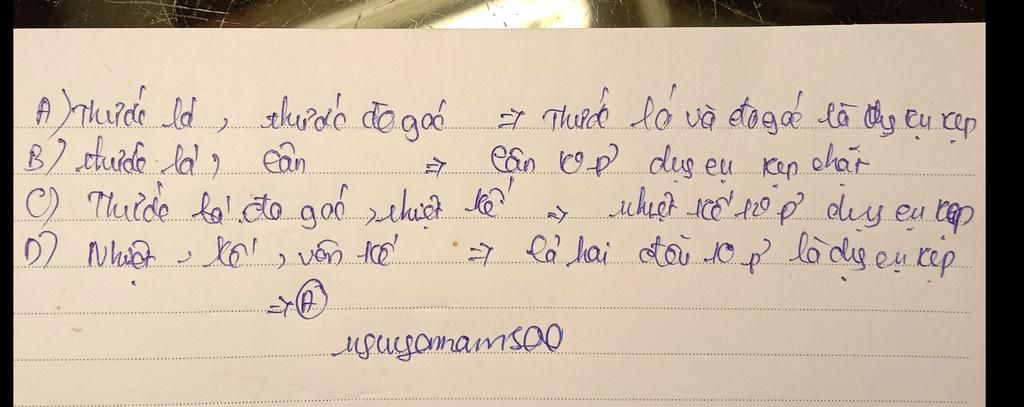 A) Thước lá, thước đo góc => Thước lá và đo góc là dụng cụ kẹp
B) thước lá, cân => cân ko p' dụng cụ kẹp chặt
C) Thước lá, đo góc, nhiệt kế => nhiệt kế ko p' dụng cụ kẹp
D) Nhiệt, kế, vôn kế => cả hai đều ko p' là dụng cụ kẹp
=> A
nguyennam500